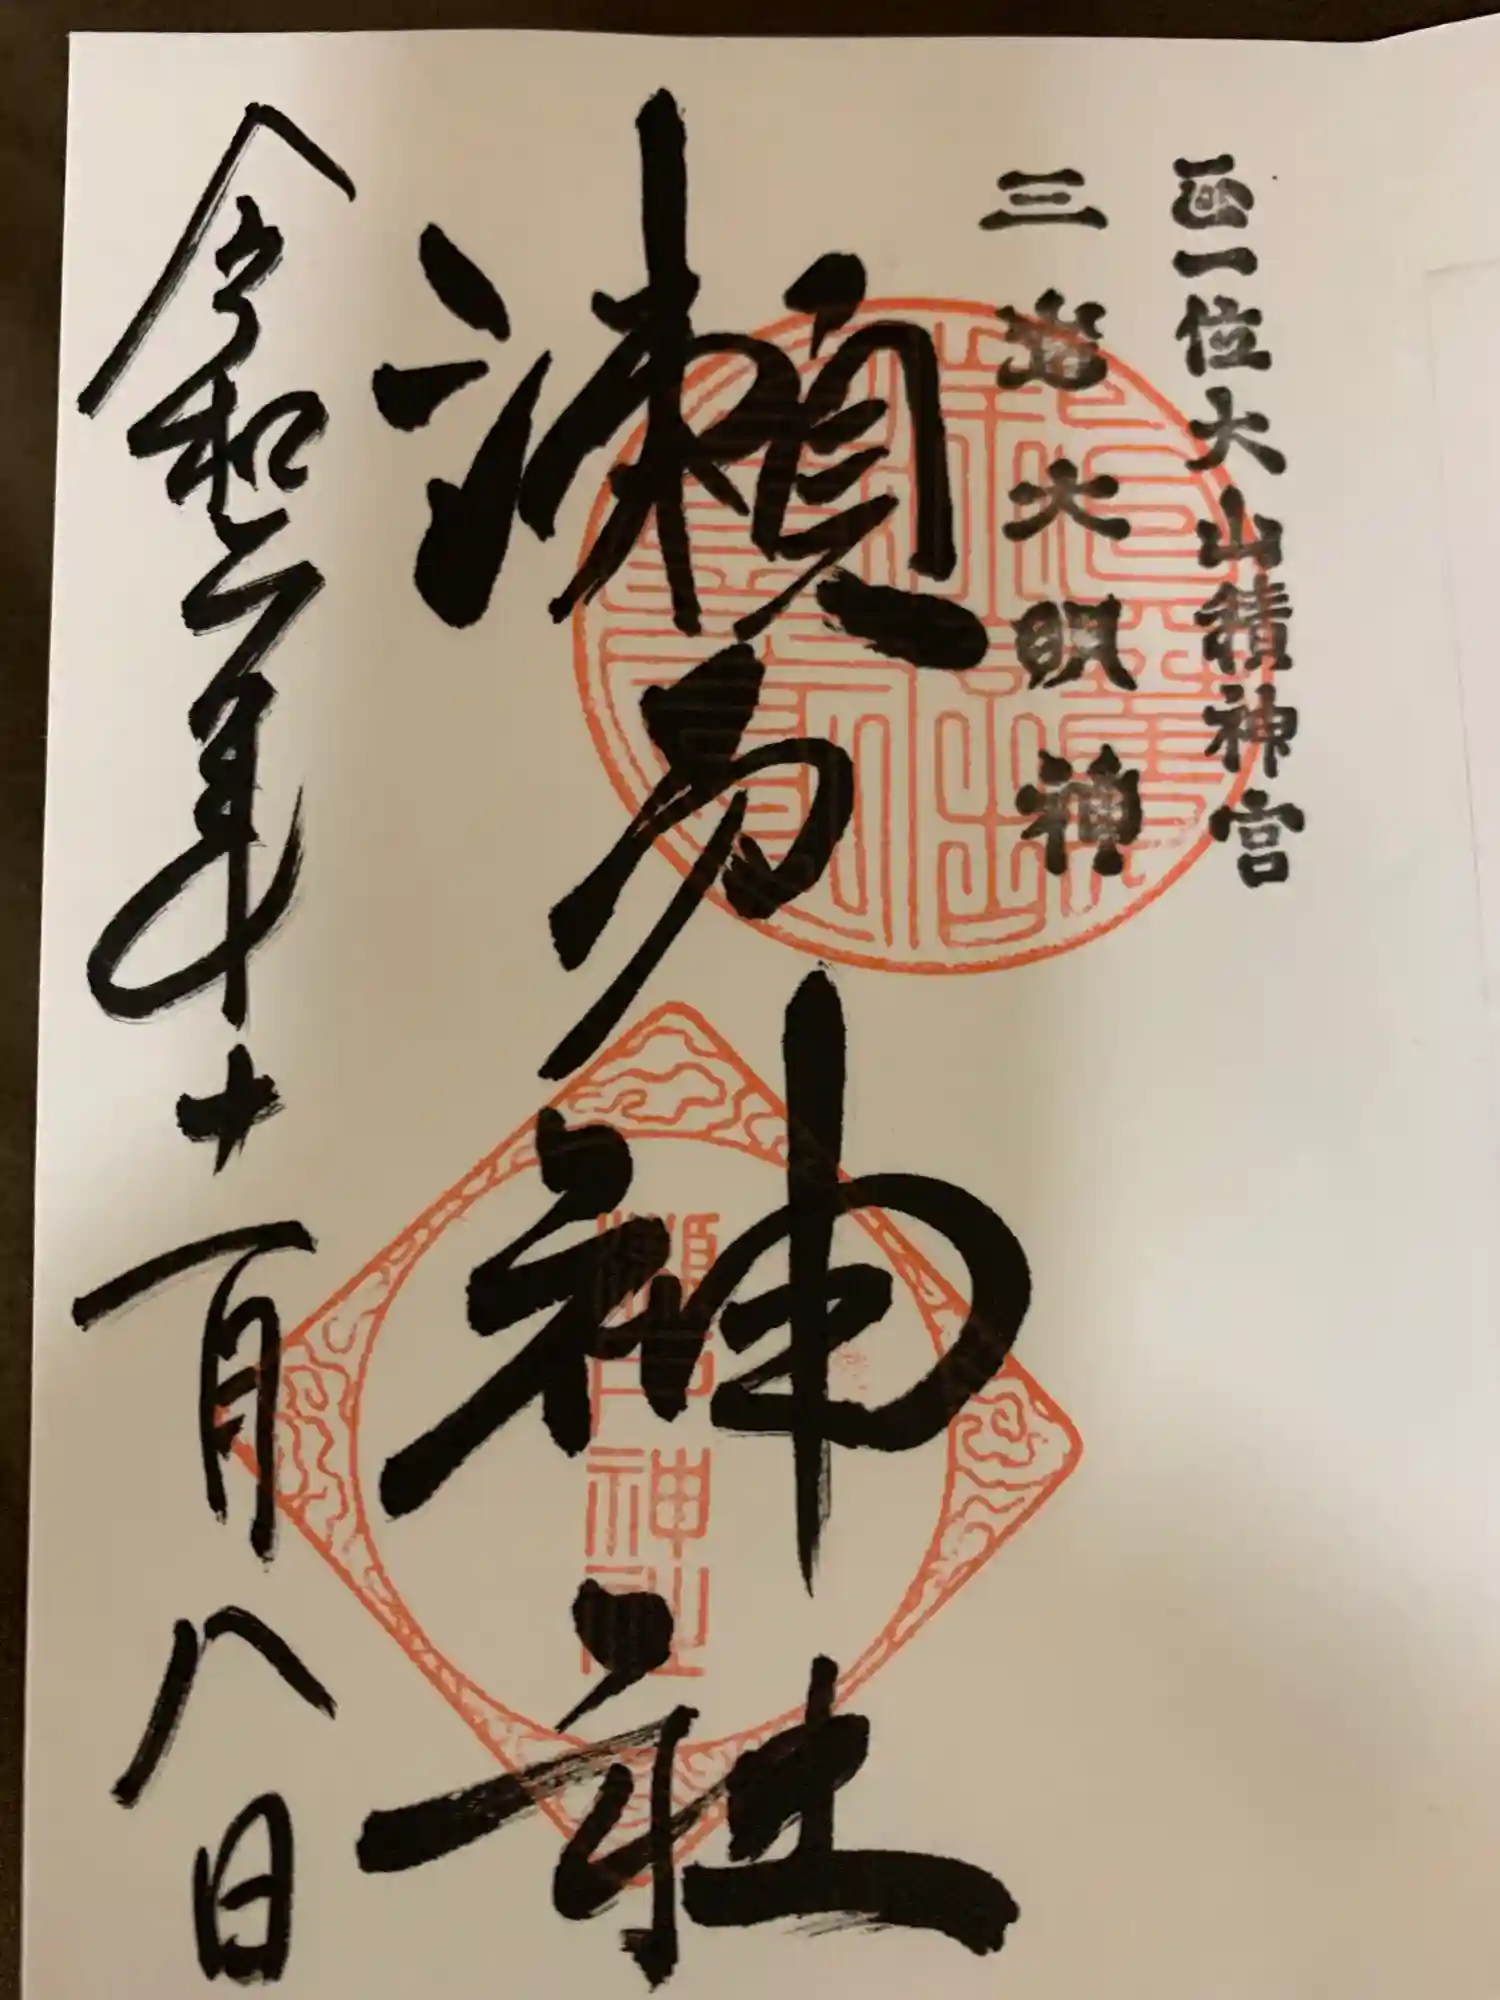 正一位大山積神宮
三嶌大明神
瀬戸神社
瀬戸神社
令和二年十一月八日